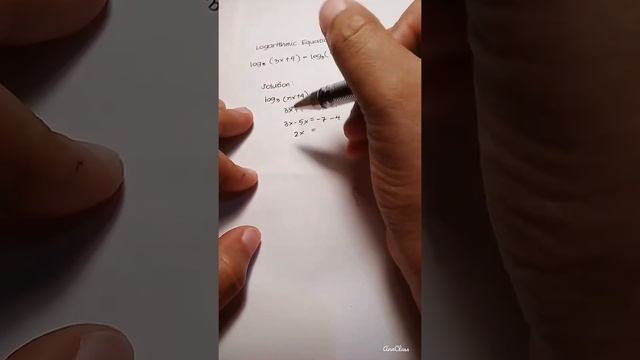 Logarithmic Equation
log₃ (3x+4) = log₃ (
Solution:
log₃
3x
3x - 5x = -7 - 4
2x =
AnnClass